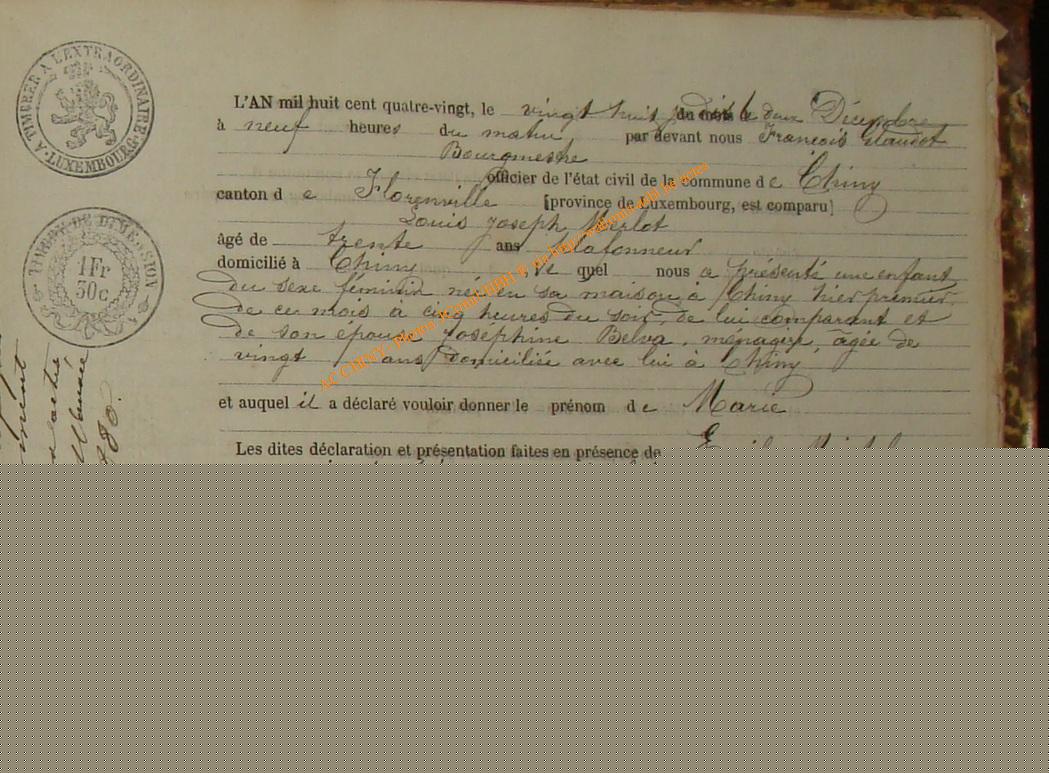 A TIMBRER A L'EXTRAORDINAIRE
LUXEMBOURG
TIMBRE DE DIMENSION
1 Fr
30 c
L'AN mil huit cent quatre-vingt, le vingt huit le deux Décembre
à neuf heures du matin, par devant nous François
Bourgmestre
officier de l'état civil de la commune de Chiny
canton de Florenville [province de Luxembourg, est comparu]
Louis Joseph Merlot
âgé de trente ans plafonneur
domicilié à Chiny lequel nous a présenté une enfant
du sexe féminin née en sa maison à Chiny hier premier
de ce mois à cinq heures du soir, de lui comparant et
de son épouse Joséphine Belva, ménagère, âgée de
vingt ans domiciliée avec lui à Chiny
et auquel il a déclaré vouloir donner le prénom de Marie
Les dites déclaration et présentation faites en présence de
AC CHINY - Photos